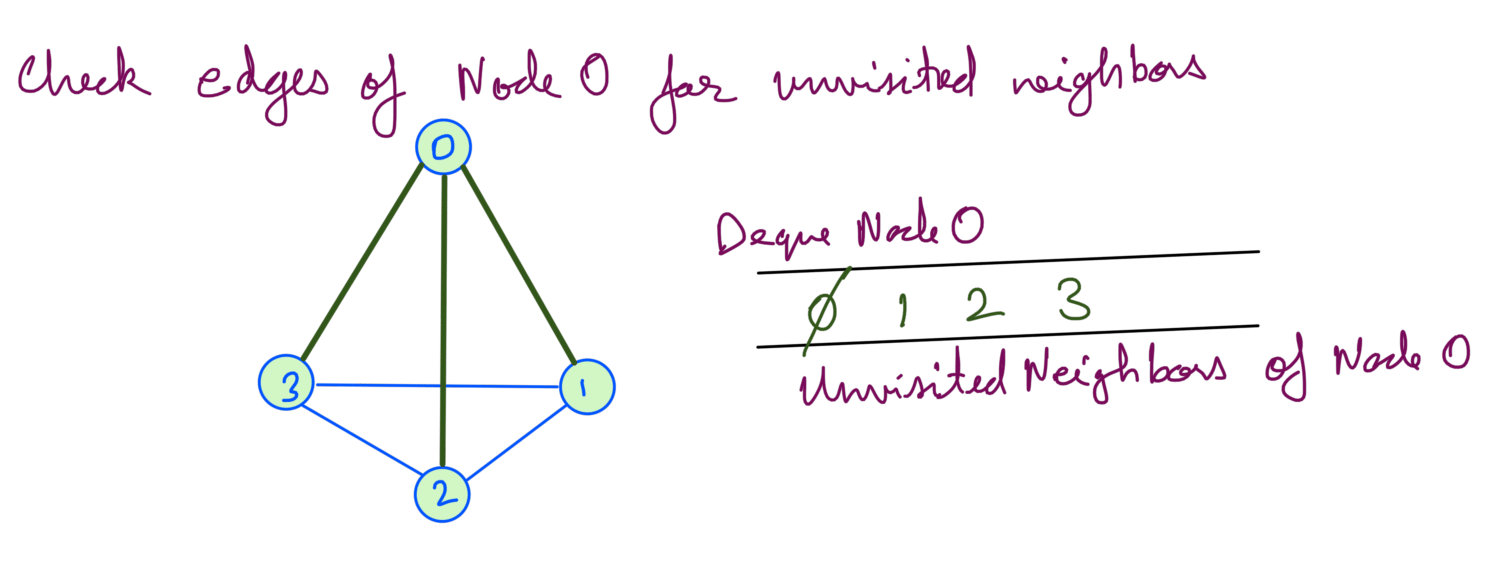 Check edges of Node 0 for unvisited neighbors
0
Deque Node 0
0 1 2 3
Unvisited Neighbors of Node 0
3
1
2